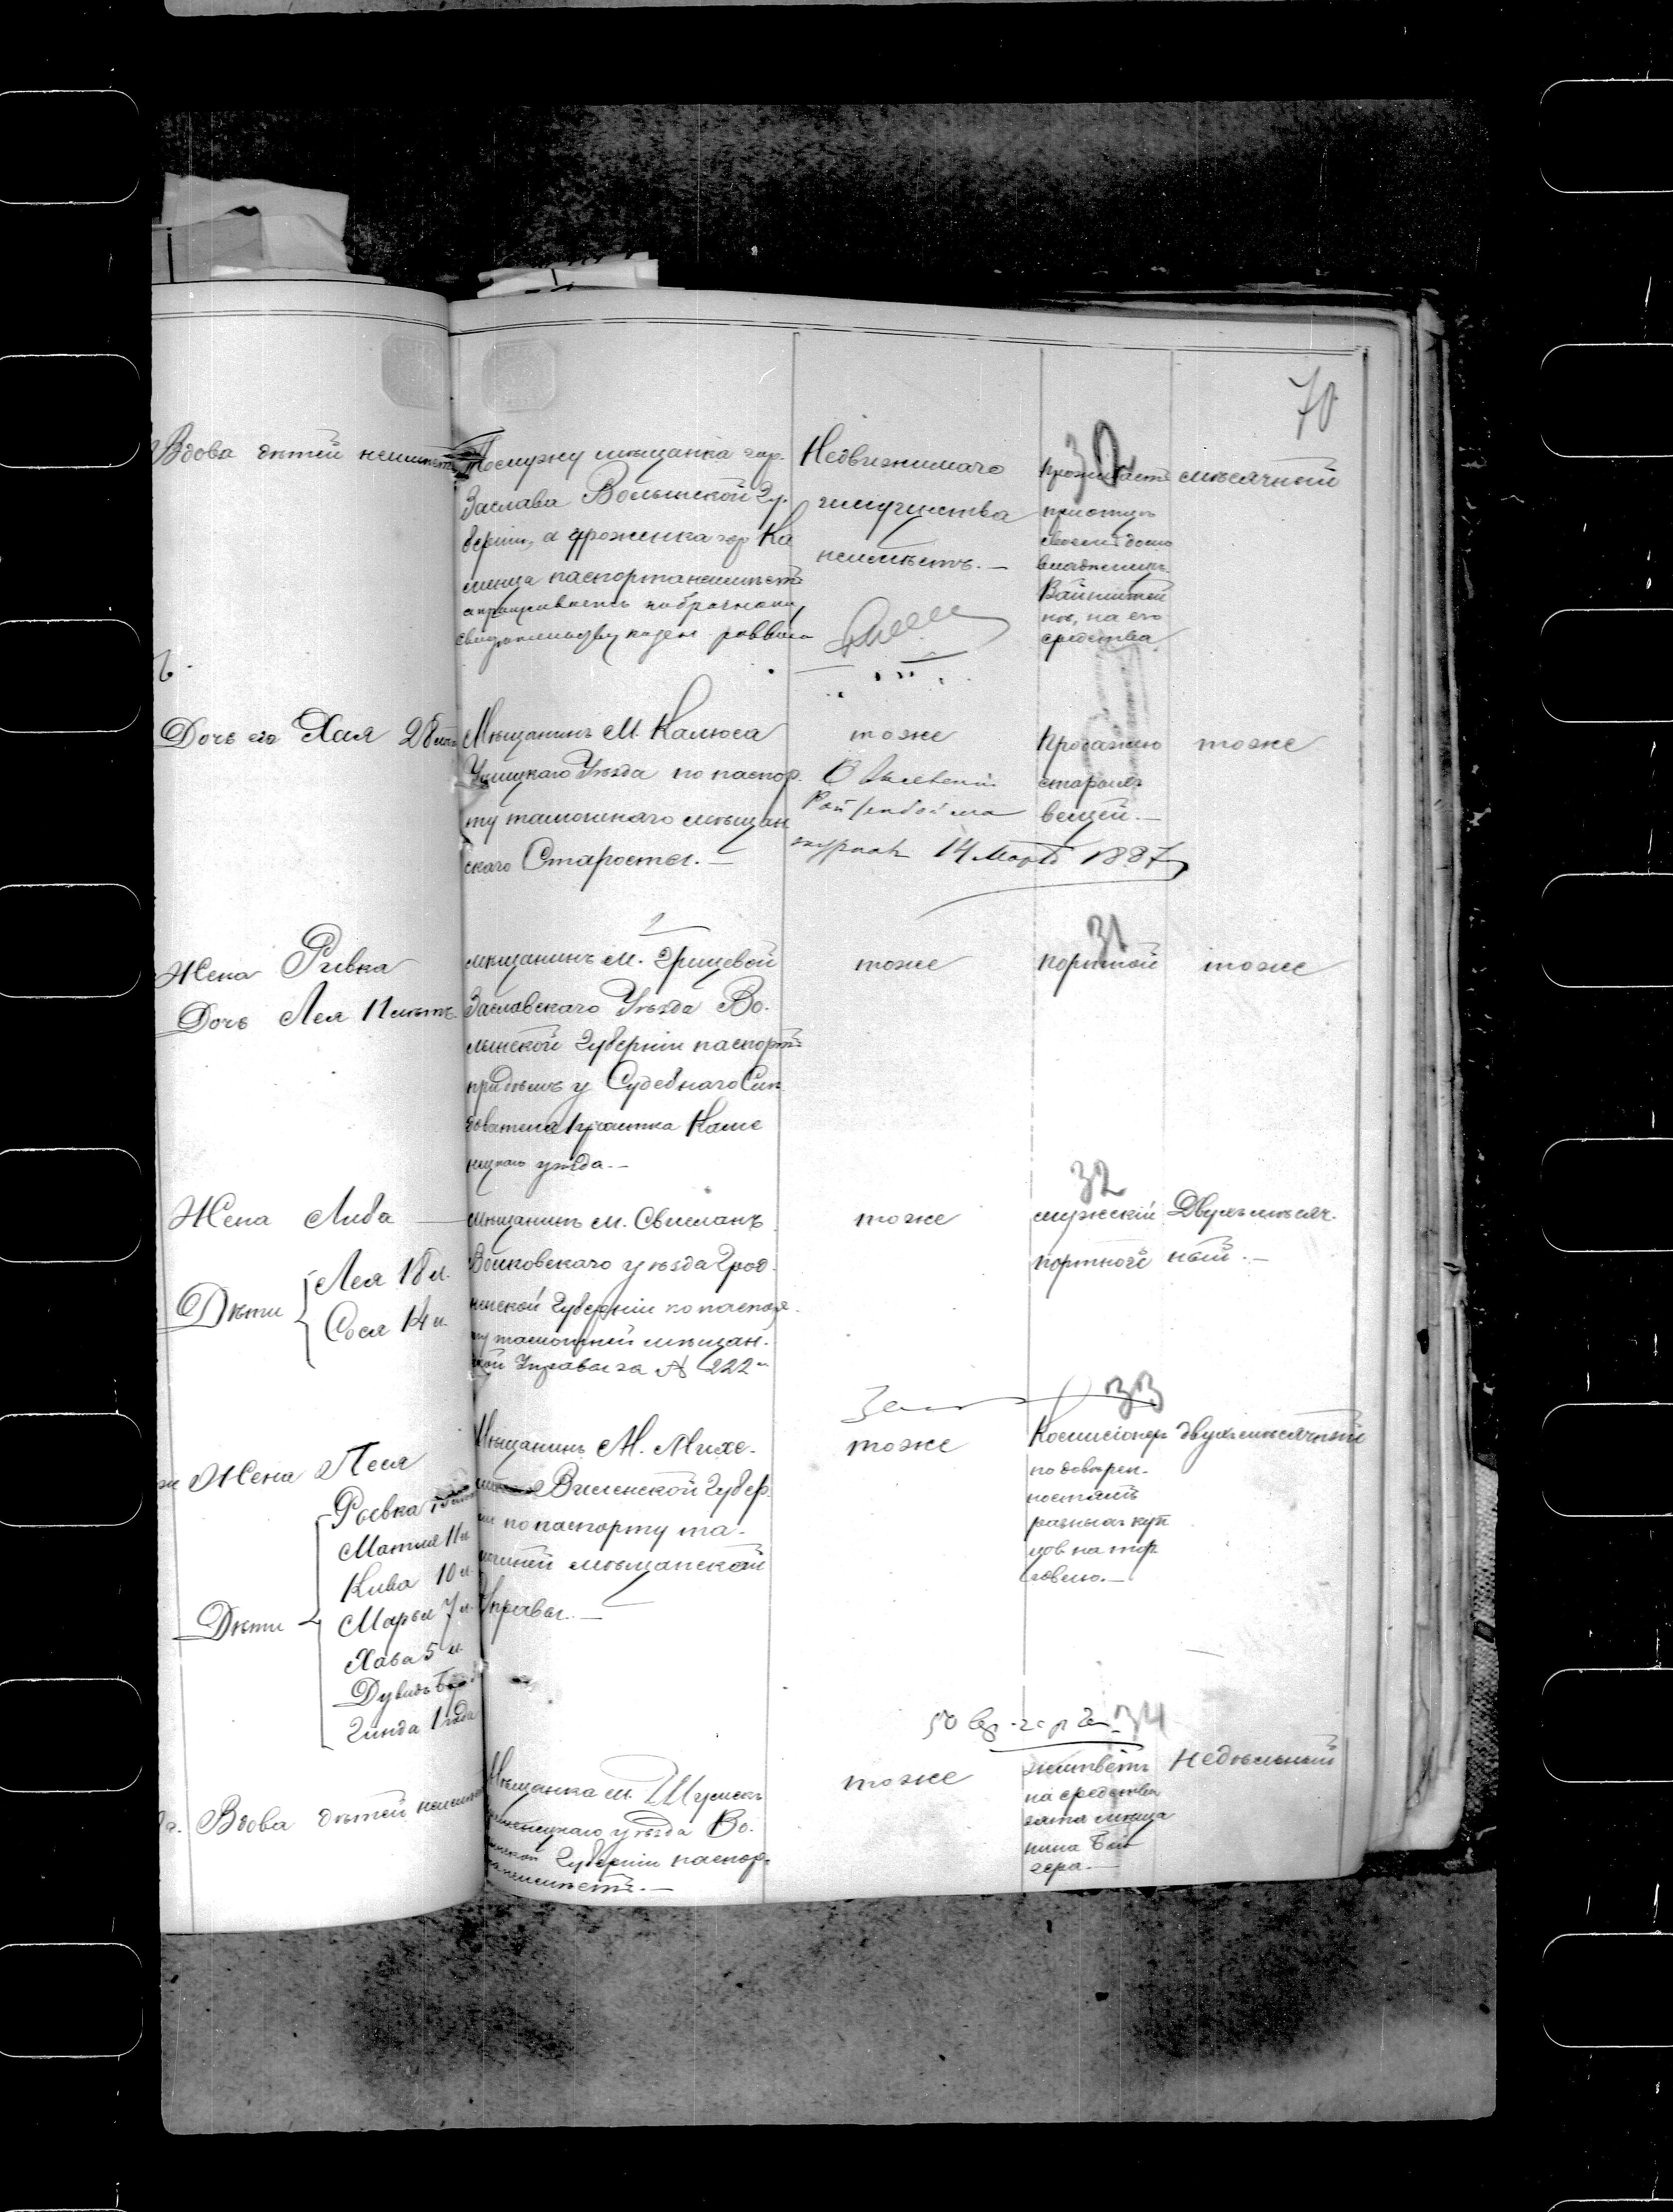 70
30
Вдова дѣтей неимѣетъ
По мужу мѣщанка гор.
Заслава Волынской Гу
берніи, а уроженка гор Ка
менца паспорта неимѣетъ
свидѣтельству казен раввина
Недвижимаго
имущества
неимѣетъ. —
Проживаетъ
при отцѣ
своемъ домо
владельцѣ
Вайнштей
нѣ, на его
средства
мѣсячный
Дочь его Хая 28 лѣтъ
Мѣщанинъ М. Калюса
Ушицкаго Уѣзда по паспор.
ту тамошняго мѣщан
скаго Старосты. —
тоже
14 Марта 1887
Продажею
старыхъ
вещей. —
тоже
31
Жена Ривка
Дочь Лея 11 лѣтъ.
мѣщанинъ м. Грицевой
Заславскаго Уѣзда Во.
лынской Губерніи паспортъ
при дѣлѣ у Судебнаго Слѣ
дователя 1 участка Каме
нецкаго уѣзда. —
тоже
портной
тоже
32
Жена Либа —
Дѣти
Лея 18 л.
Сося 14 л.
мѣщанинъ м. Свислачъ
Волковскаго уѣзда Грод.
ненской Губерніи по паспор.
ту тамошней мѣщан.
ской Управы за № 222
тоже
мужскій
портной
Двухъ мѣсяч.
ный. —
33
Жена Песя
Дѣти
Ривка
Матля 11 л
Кива 10 л
Марья 7 л.
Хава 5 л.
Дувидъ
Гинда 1 года
Мѣщанинъ М. Михе.
Виленской Губер.
ніи по паспорту та.
мошней мѣщанской
Управы. —
тоже
Комисіонеръ
по доверен.
ностямъ
разныхъ куп
цовъ на тор
говлю. —
двухъ мѣсячный
34
Вдова дѣтей неимѣетъ
Мѣщанка м. Шумскъ
Кременецкаго уѣзда Во.
лынской Губерніи паспор.
та неимѣетъ. —
тоже
живетъ
на средства
зятя мѣща
нина
гера. —
Недѣльный